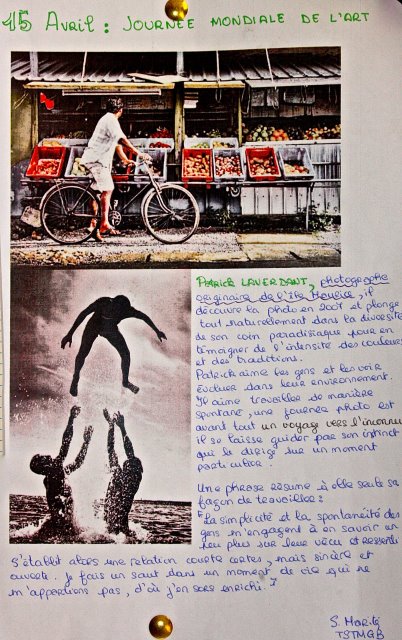 15 Avril : JOURNÉE MONDIALE DE L'ART
PATRICK LAVERDANT, photographe
originaire de l'île Maurice, il
découvre la photo en 2007 et plonge
tout naturellement dans la diversité
de son coin paradisiaque pour en
témoigner de l'intensité des couleurs
et des traditions.
Patrick aime les gens et les voir
évoluer dans leur environnement.
Il aime travailler de manière
spontanée, une journée photo est
avant tout un voyage vers l'inconnu
il se laisse guider par son instinct
qui le dirige sur un moment
particulier.
Une phrase résume à elle seule sa
façon de travailler ?
"La simplicité et la spontanéité des
gens m'engagent à en savoir un
peu plus sur leur vécu et ressenti
s'établit alors une relation courte certes, mais sincère et
ouverte. Je fais un saut dans un moment de vie qui ne
m'appartiens pas, d'où j'en sors enrichi."
S. Marité
TSTMGB